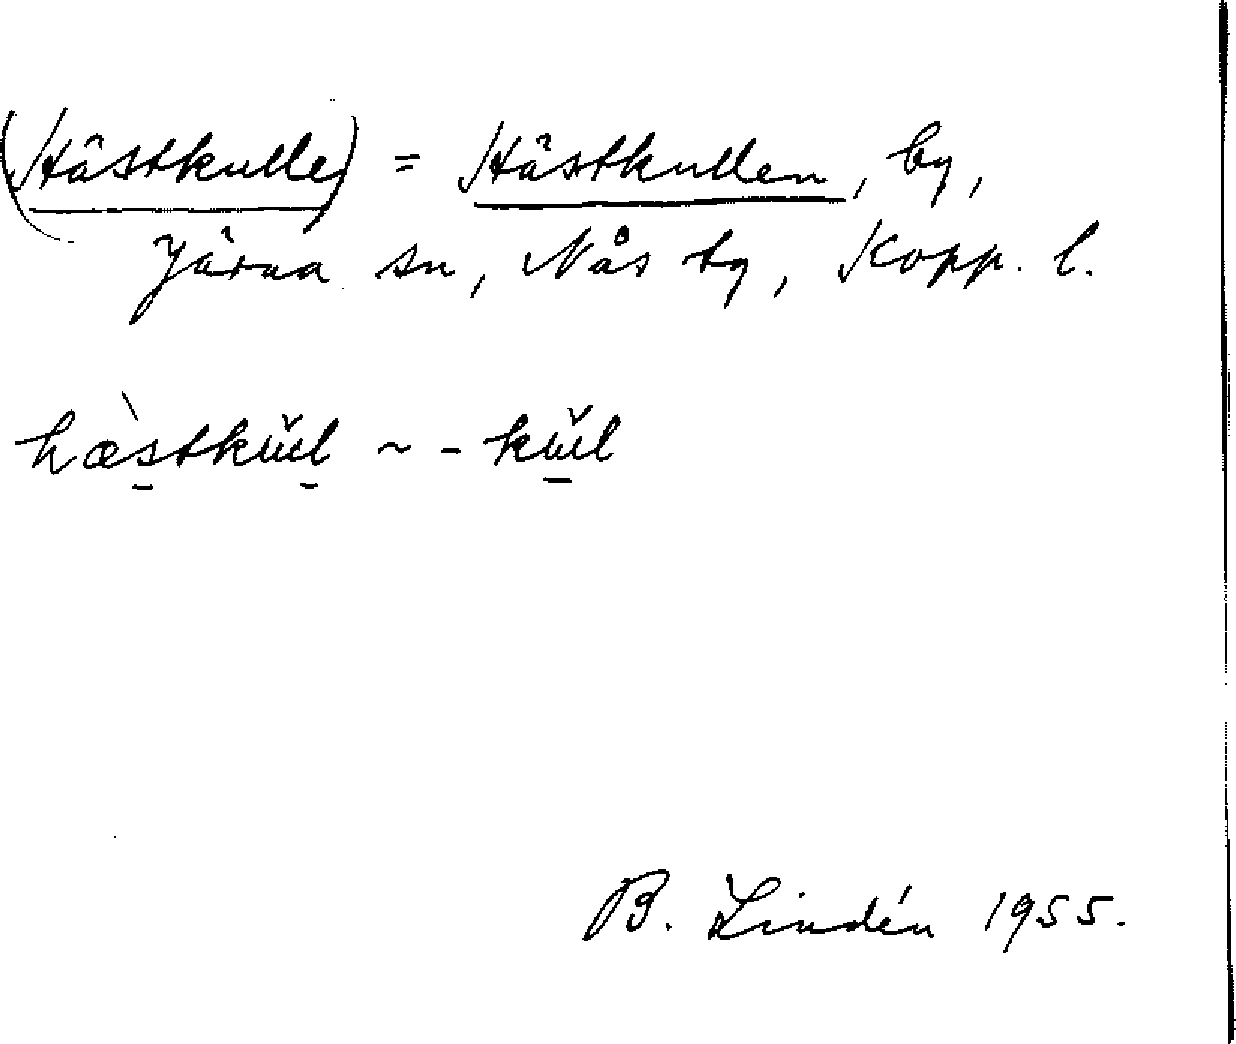 (Hästkulle) = Hästkullen, by,
Järna sn, Nås tg, Kopp. l.
hæ̀stkŭl ~ -kŭl
B. Lindén 1955.